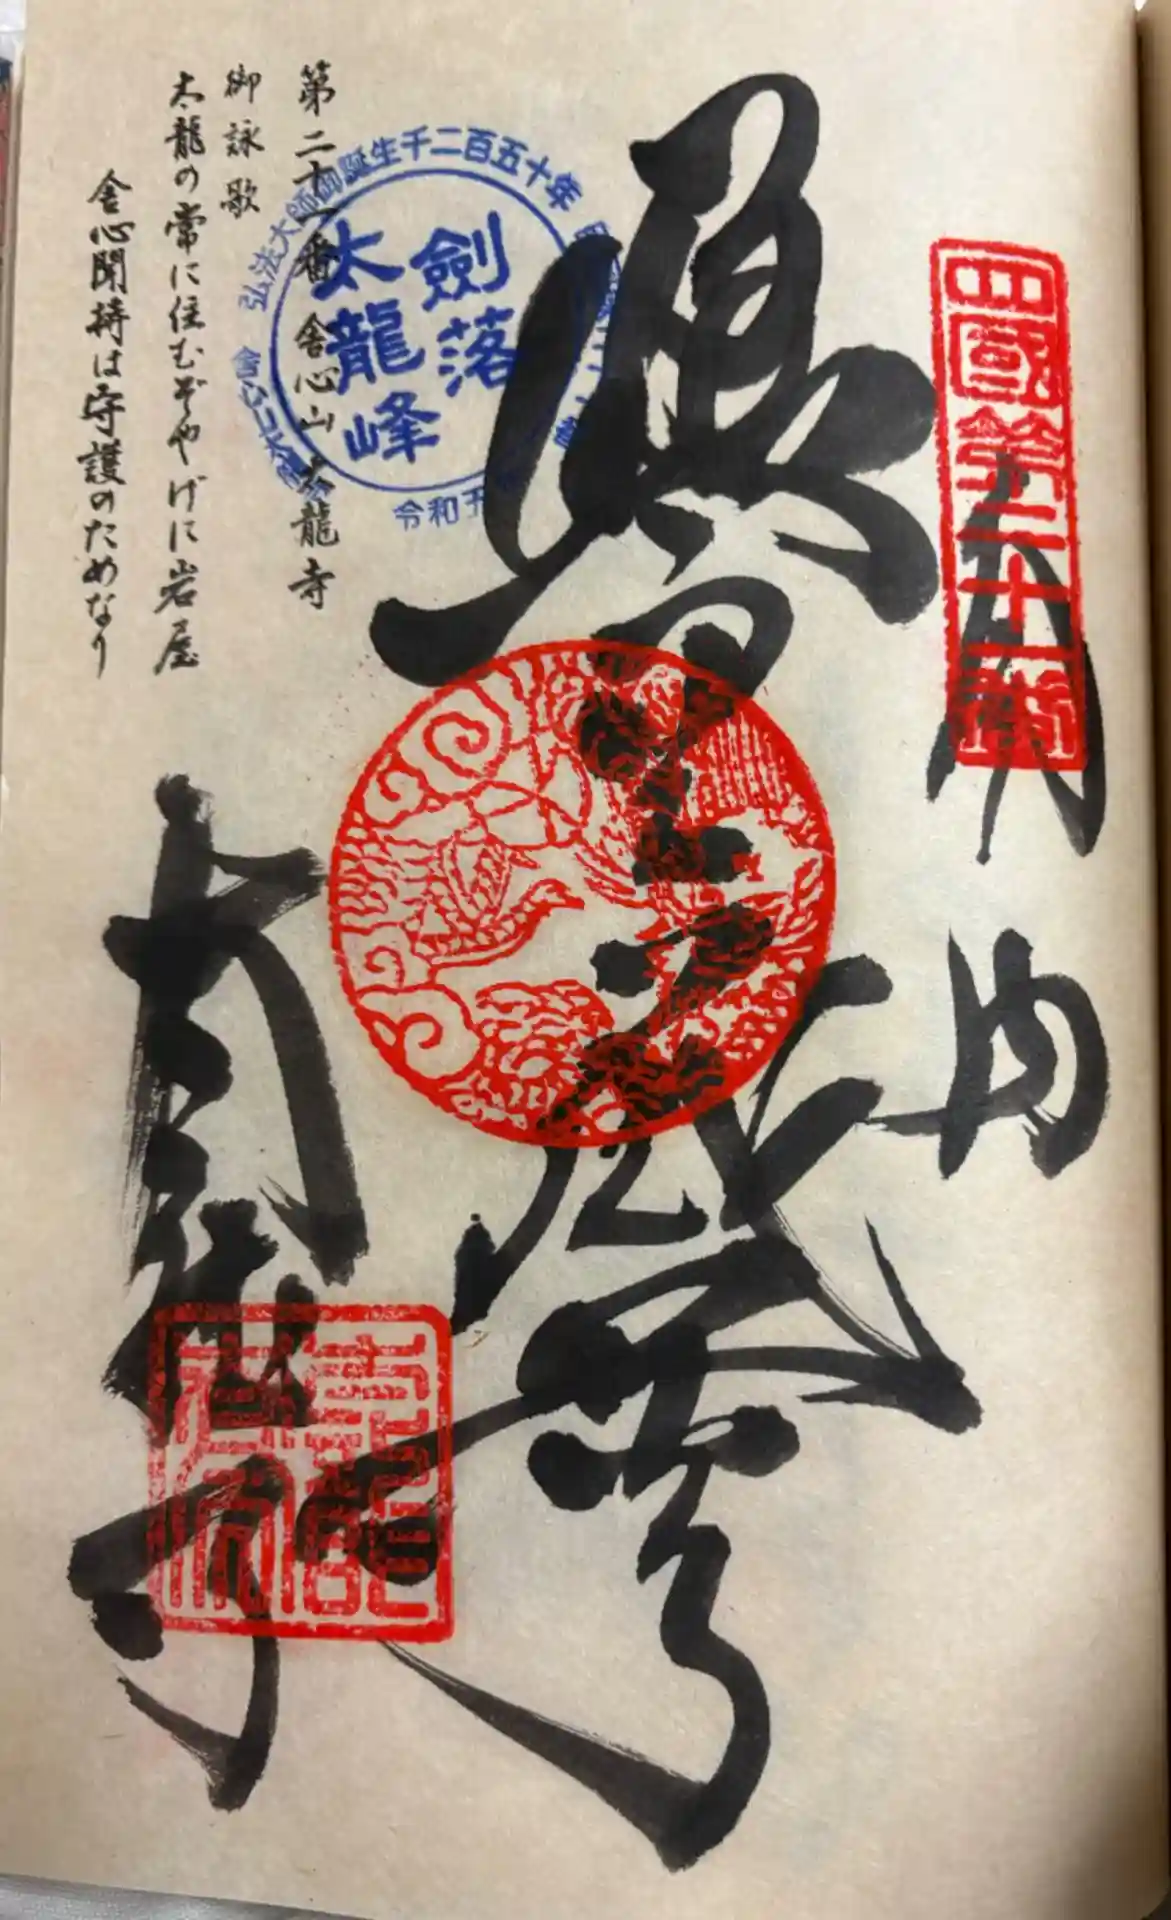 四國第二十一番
奉納
虚空蔵
太龍寺
第二十一番 舎心山 太龍寺
御詠歌
太龍の常に住むぞやげに岩屋
舎心聞持は守護のためなり
弘法大師御誕生千二百五十年
劍落
太龍峰
令和五